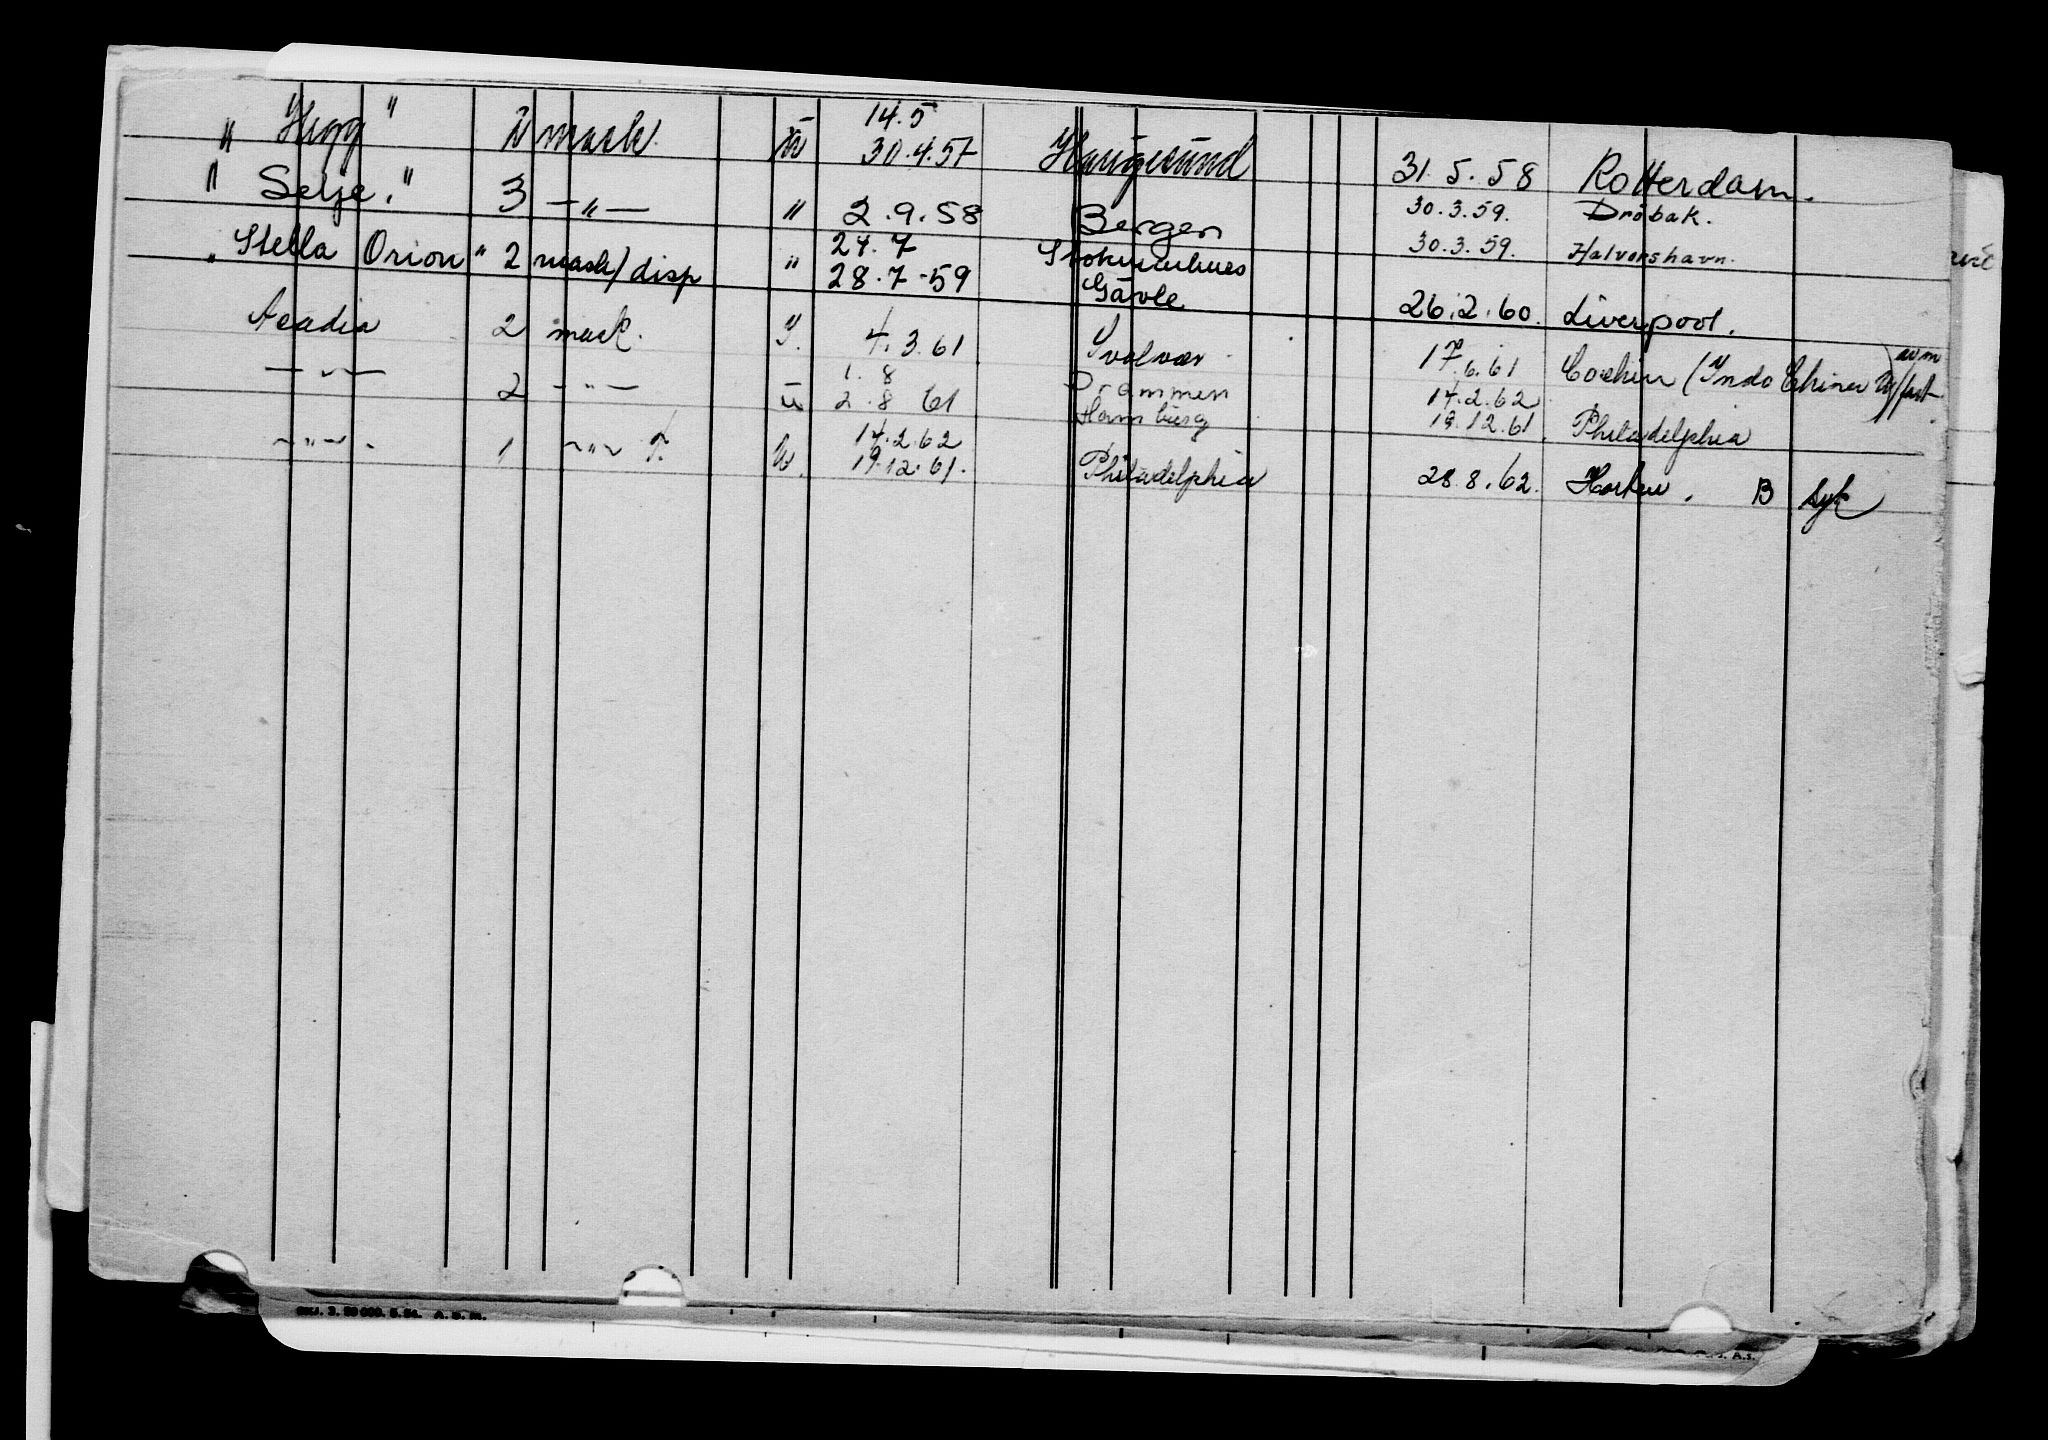 14.5
" Hugg " 2 mask. ü 30.4.57 Haugesund 31.5.58 Rotterdam.
" Selje. " 3 —"— " 2.9.58 Bergen 30.3.59. Drøbak.
27.7 30.3.59. Halvorshavn.
" Stella Orion " 2 mask/disp " 28.7-59 Gävle 26.2.60. Liverpool.
Acadia 2 mask. 4.3.61 Svolvær 17.6.61 Cochin (Indo China)
1.8 Drammen 17.2.62
—"— 2 —"— ü 2.8 61 Hamburg 19.12.61. Philadelphia
17.2.62
—"— . 1 —"— 19.12.61. Philadelphia 28.8.62. B syk